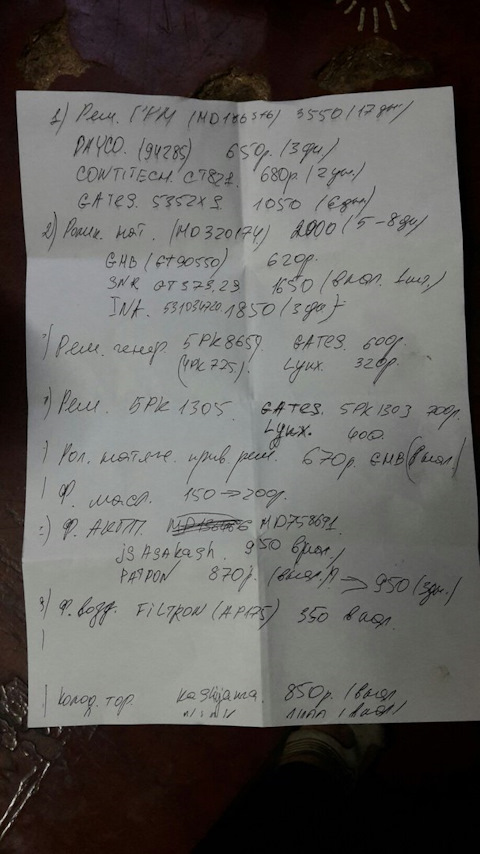 1) Рем. ГРМ (MD186376) 3550 (17 дн)
DAYCO. (94285) 650р. (3дн)
CONTITECH. CT821. 680р. (2дн.)
GATES. 5352XS. 1050 (6дн)
2) Ролик нат. (MD320174) 2000 (5-8дн)
GMB (GT90550) 620р.
SNR GT373.29 1650 (внал. 1шт.)
INA. 531034720 1850 (3дн)
) Рем. генер. 5PK865 GATES. 600р.
(4PK725). Lynx. 320р.
) Рем. 5PK1305. GATES. 5PK1303 700р.
Lynx. 400.
) Рол. натяж. прив. рем. 670р. GMB (внал)
) Ф. масл. 150 → 200р.
) Ф. АКПП. MD758691
jS ASAkAsh. 950 внал.
PATRON 870р. (внал.) → 950 (3дн.)
) Ф. возд. FiLTRON (AP175) 350 внал.
) Колод. тор. Kashiyama. 850р. (внал
(внал